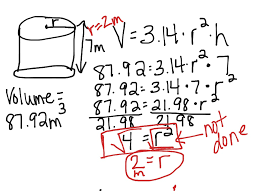 r
r=2m
7m
V=3.14·r²·h
87.92=3.14·r²·7
Volume=
87.92m³
87.92=3.14·7·r²
87.92=21.98·r²
21.98 21.98
√4=√r²
not done
2m=r